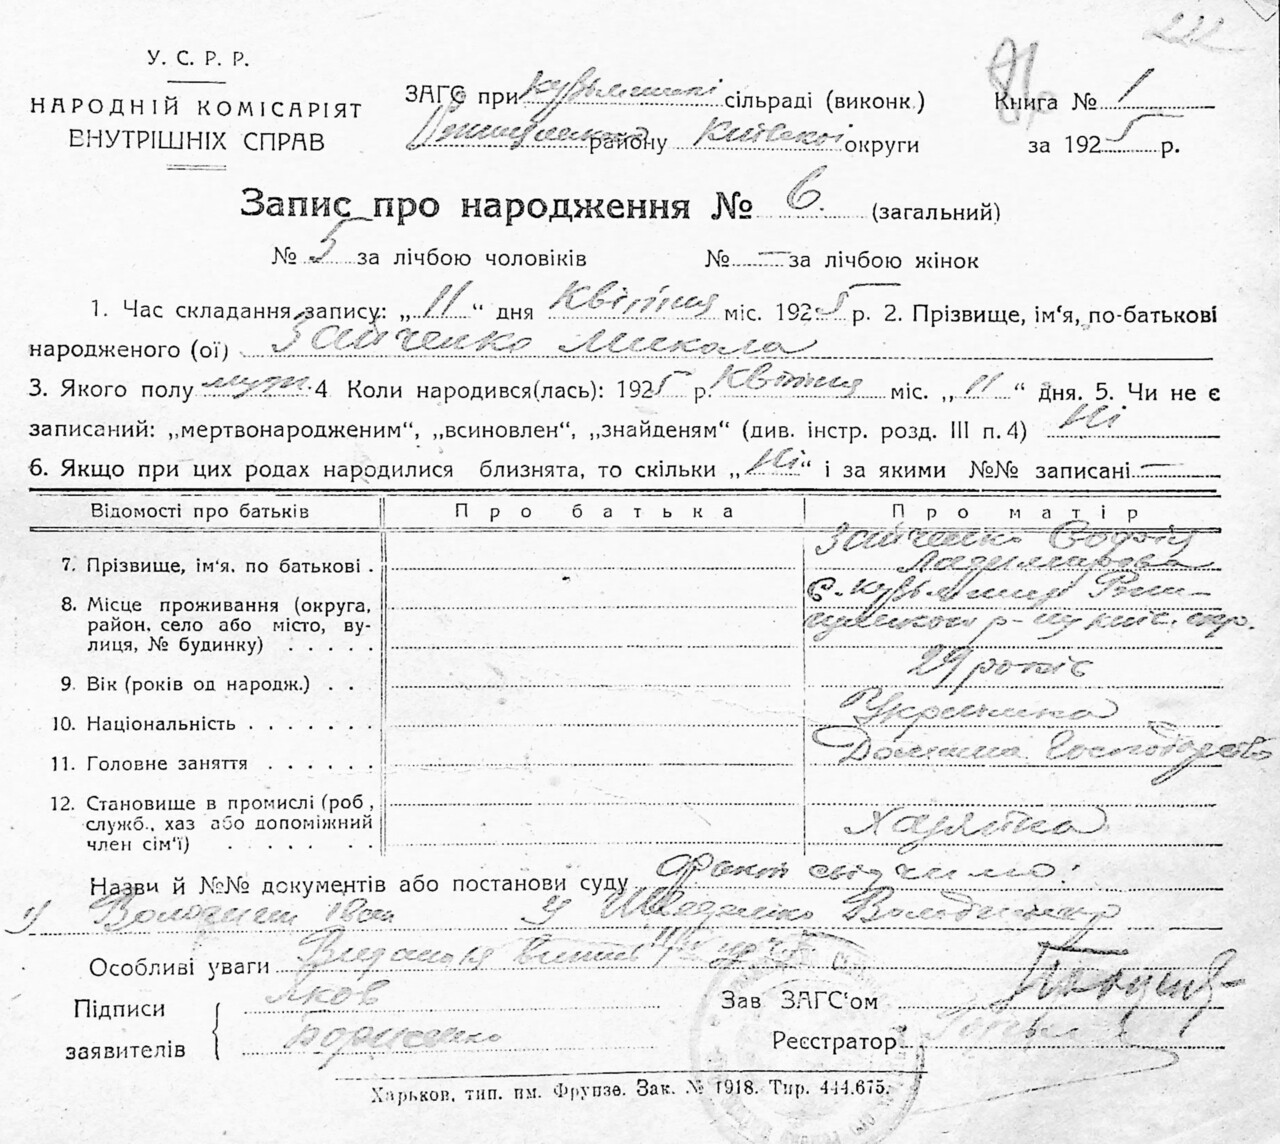 222
У. С. Р. Р.
НАРОДНІЙ КОМІСАРІЯТ
ВНУТРІШНІХ СПРАВ
ЗАГС при сільраді (виконк.)
району Київської округи
Книга № 1
за 1925 р.
Запис про народження № 6. (загальний)
№ 5 за лічбою чоловіків № — за лічбою жінок
1. Час складання запису: „ 11 “ дня Квітня міс. 1925 р. 2. Прізвище, ім‘я, по-батькові
народженого (ої) Зайченко Микола
3. Якого полу муж. 4 Коли народився(лась): 1925 р. Квітня міс. „ 11 “ дня. 5. Чи не є
записаний: „мертвонародженим“, „всиновлен“, „знайденям“ (див. інстр. розд. III п. 4) Ні
6. Якщо при цих родах народилися близнята, то скільки „ Ні “ і за якими №№ записані —
Відомості про батьків Про батька Про матір
7. Прізвище, ім‘я, по батькові . Зайченко Софія
8. Місце проживання (округа, район, село або місто, ву-
лиця, № будинку) . . . . .
9. Вік (років од народж.) . . . 29 років
10. Національність . . . . . . . Українка
11. Головне заняття . . . . . . Домашнє Господарство
12. Становище в промислі (роб,
служб., хаз або допоміжний
член сім‘ї) . . . . . . Хазяйка
Назви й №№ документів або постанови суду Факт свідчимо:
Володимир
Особливі уваги
Підписи
заявителів
Яков
Борисенко
Зав ЗАГС‘ом
Реєстратор
Харьков, тип. им. Фрунзе. Зак. № 1918. Тир. 444.675.